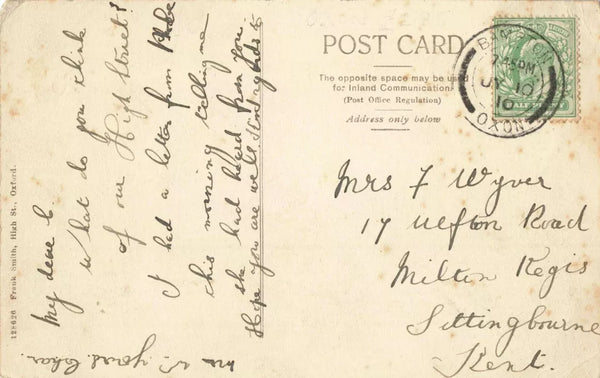 My dear C.
What do you think
of our High Street?
I had a letter from Phebe
this morning telling me
she had heard from you
Hope you are well &
yours Char.
128626 Frank Smith, High St., Oxford.
POST CARD.
The opposite space may be used
for Inland Communication
(Post Office Regulation)
Address only below
7.45PM
JY 10
10
OXON
HALF PENNY
Mrs F Wyver
17 Ufton Road
Milton Regis
Sittingbourne
Kent.